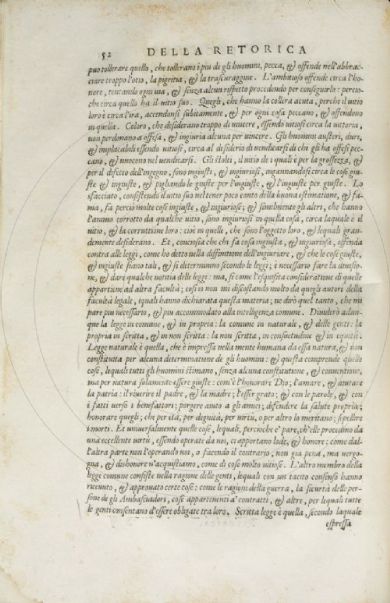 52 DELLA RETORICA
può tollerare quello, che tollerano i più de gli huomini, pecca, & offende nell'abbrac-
ciare troppo l'otio, la pigritia, & la trascuraggine. L'ambitioso offende circa l'ho-
nore, tentando ogni via, & senza alcun rispetto procedendo per conseguirlo: percio-
che circa quello ha il vitio suo. Quegli, che hanno la collera acuta, perche il vitio
loro è circa l'ira, accendensi subitamente, & per ogni cosa peccano, & offendono
in quella. Coloro, che desiderano troppo di vincere, essendo vitiosi circa la vittoria,
non perdonano a offesa, & ingiuria alcuna per vincere. Gli huomini austeri, duri,
& implacabili essendo vitiosi, circa al desiderio di vendicarsi di chi gli ha offesi pec-
cano, & nuocono nel vendicarsi. Gli stolti, il vitio de i quali è per la grossezza, &
per il difetto dell'ingegno, sono ingiusti, & ingiuriosi, ingannandosi circa le cose giu-
ste & ingiuste, & pigliando le giuste per l'ingiuste, & l'ingiuste per giuste. Lo
sfacciato, consistendo il vitio suo nel tener poco conto della buona estimatione, & fa-
ma, fa perciò molte cose ingiuste, & ingiuriose; & similmente gli altri, che hanno
l'animo corrotto da qualche vitio, sono ingiuriosi in quella cosa, circa laquale è il
vitio, & la corruttione loro: cioè in quelle, che sono l'oggetto loro, & lequali gran-
demente desiderano. Et, conciosia che chi fa cosa ingiusta, & ingiuriosa, offenda
contra alle leggi, come ho detto nella diffinitione dell'ingiuriare, & che le cose giuste,
& ingiuste siano tali, & si determinino secondo le leggi; è necessario fare la divisio-
ne, & dare qualche notitia delle leggi: ma, si come l'esquisita consideratione di quelle
appartiene ad altra facultà; così io non mi discostando molto da quegli autori della
facultà legale, iquali hanno dichiarata questa materia; ne dirò quel tanto, che mi
pare più necessario, & più accommodato alla intelligenza comune. Dividesi adun-
que la legge in comune, & in propria: la comune in naturale, & delle genti: la
propria in scritta, & in non scritta: la non scritta, in consuetudine & in equità.
Legge naturale è quella, che è impressa nella mente humana da essa natura, & non
constituita per alcuna determinatione de gli huomini: & questa comprende quelle
cose, lequali tutti gli huomini stimano, senza alcuna constitutione, & conventione,
ma per natura solamente essere giuste: com'è l'honorare Dio; l'amare, & aiutare
la patria: il riverire il padre, & la madre; l'esser grato; & con le parole, & con
i fatti verso i benefattori; porgere aiuto a gli amici; difendere la salute propria;
honorare quegli; che per età, per dignità, per virtù, o per altro lo meritano; sepellire
i morti. Et universalmente quelle cose, lequali, percioche e' pare, ch'elle procedino da
una eccellente virtù, essendo operate da noi, ci apportano lode, & honore: come dal-
l'altra parte non l'operando noi, o facendo il contrario, non già pena, ma vergo-
gna, & dishonore n'acquistiamo, come di cose molto vitiose. L'altro membro della
legge comune consiste nella ragione delle genti, lequali con un tacito consenso hanno
ricevuto, & approvato certe cose: come le ragioni della guerra, la sicurtà delle per-
sone de gli Ambasciadori, cose appartenenti a' contratti, & altre, per lequali tutte
le genti consentano d'essere obligate tra loro. Scritta legge è quella, secondo laquale
espressa